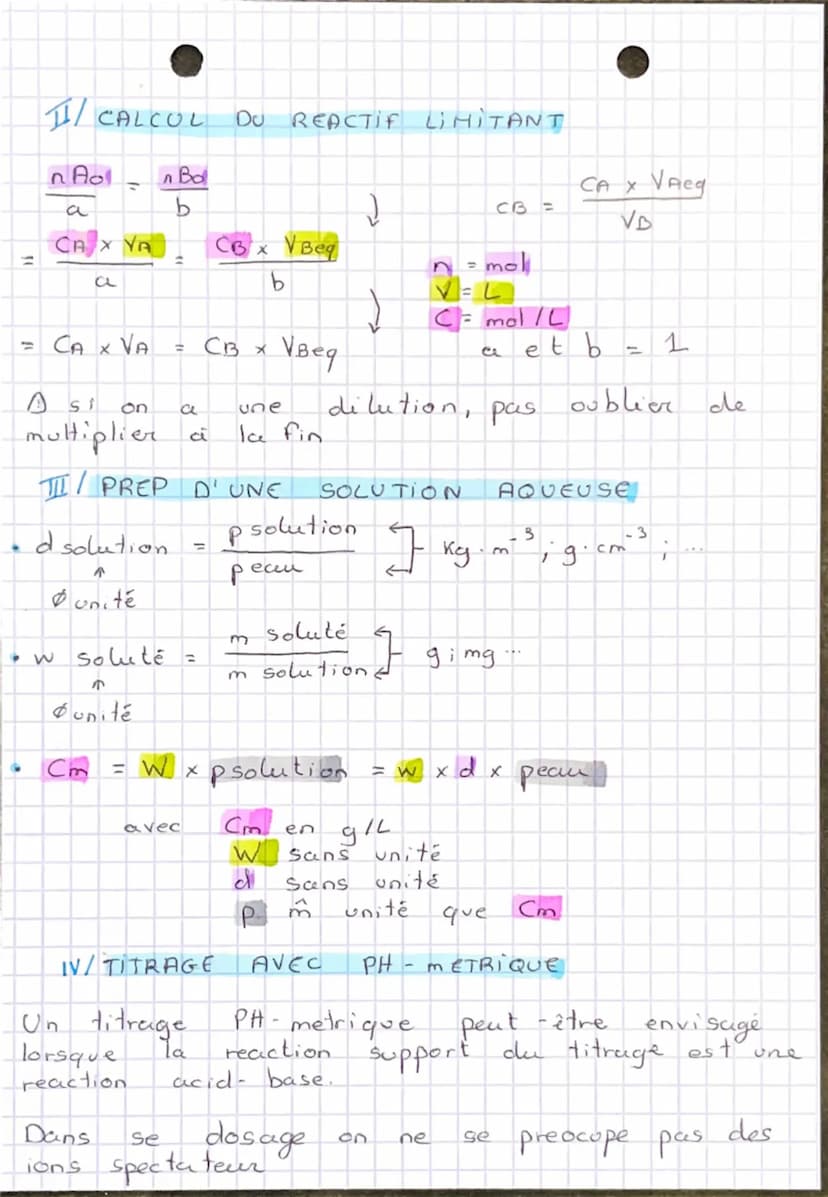 II/ CALCUL DU REACTIF LIMITANT
nA0/a = nB0/b
CB = (CA x VAeq)/VB
= (CA x VA)/a = (CB x VBeq)/b
n = mol
V = L
C = mol/L
= CA x VA = CB x VBeq
a et b = 1
⚠ si on a une dilution, pas oublier de
multiplier à la fin
III/ PREP D'UNE SOLUTION AQUEUSE
• d solution = ρ solution/ρ eau } Kg.m⁻³; g.cm⁻³; ...
↑
Ø unité
• w soluté = m soluté/m solution } g; mg...
↑
Ø unité
• Cm = W x ρsolution = w x d x ρeau
avec Cm en g/L
W sans unité
d sans unité
ρ m̂ unité que Cm
IV/ TITRAGE AVEC PH-METRIQUE
Un titrage PH-metrique peut-être envisagé
lorsque la reaction support du titrage est une
reaction acid-base.
Dans se dosage on ne se preocupe pas des
ions spectateur